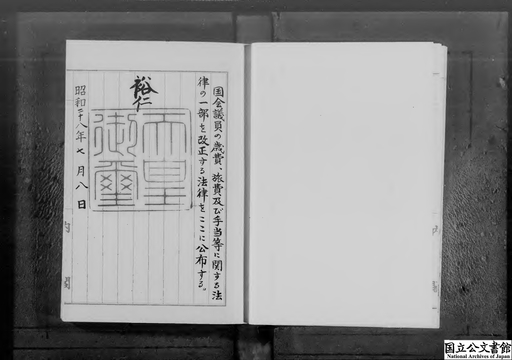 国会議員の歳費、旅費及び手当等に関する法
律の一部を改正する法律をここに公布する。
裕仁
天皇
御璽
昭和二十八年七月八日
内閣
内閣
国立公文書館
National Archives of Japan